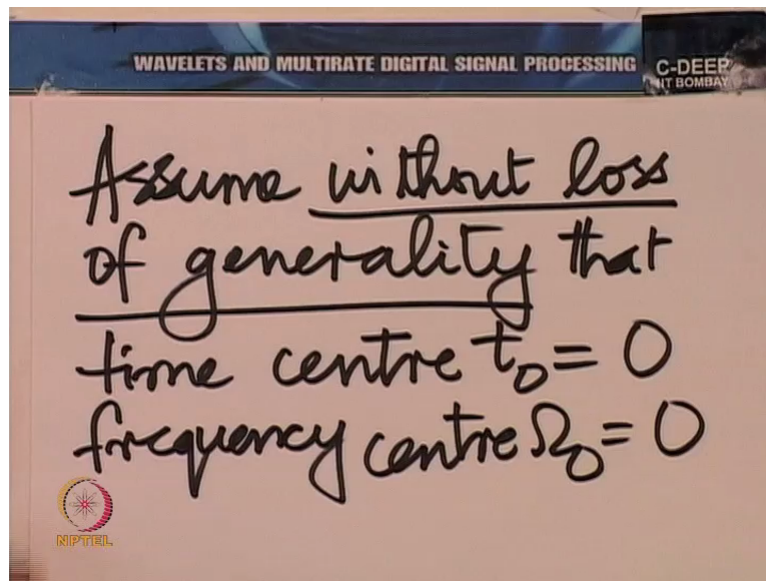 WAVELETS AND MULTIRATE DIGITAL SIGNAL PROCESSING
C-DEEP
IIT BOMBAY
Assume without loss
of generality that
time centre t₀ = 0
frequency centre Ω₀ = 0
NPTEL